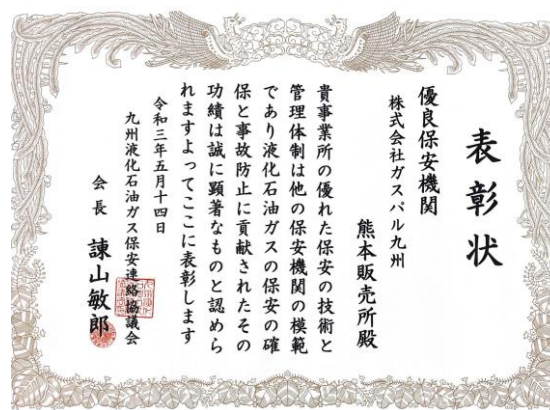 表彰状
優良保安機関
株式会社ガスパル九州
熊本販売所殿
貴事業所の優れた保安の技術と
管理体制は他の保安機関の模範
であり液化石油ガスの保安の確
保と事故防止に貢献されたその
功績は誠に顕著なものと認めら
れますよってここに表彰します
令和三年五月十四日
九州液化石油ガス保安連絡協議会
会長 諌山敏郎